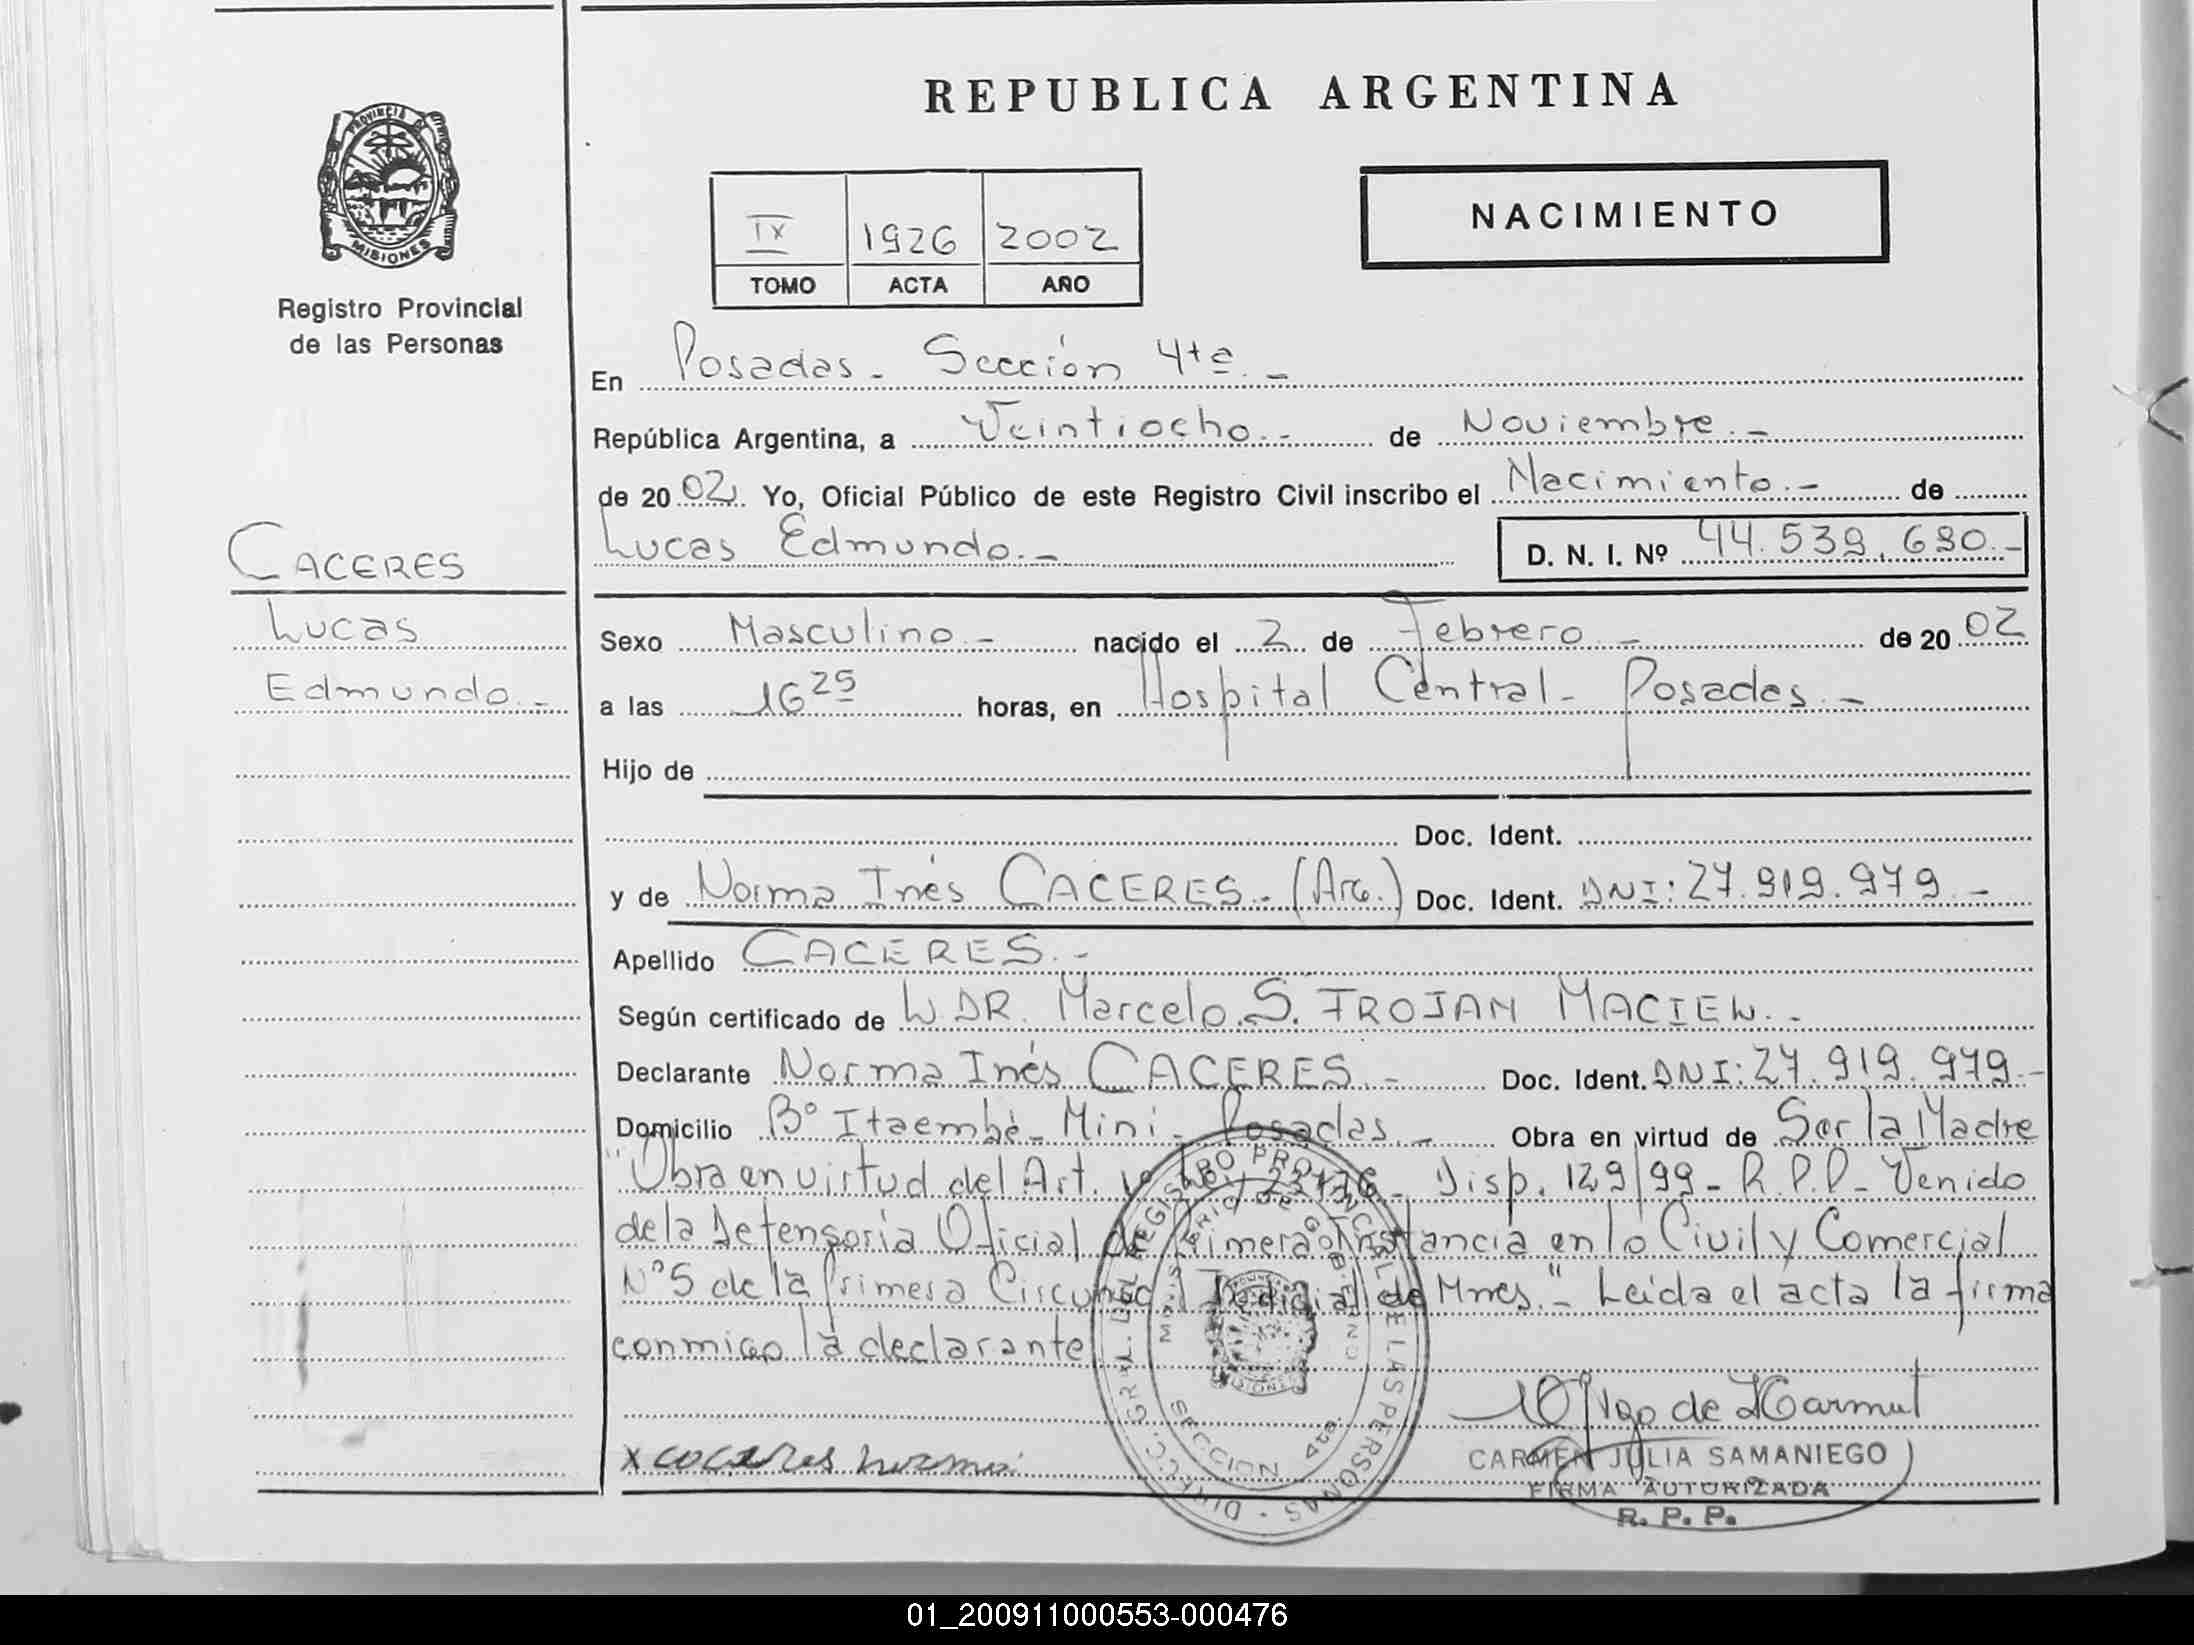 REPUBLICA ARGENTINA
PROVINCIA DE MISIONES
Registro Provincial
de las Personas
NACIMIENTO
IX 1926 2002
TOMO ACTA AÑO
En Posadas - Sección 4ta. -
República Argentina, a Veintiocho. - de Noviembre. -
de 20 02. Yo, Oficial Público de este Registro Civil inscribo el Nacimiento. - de
Lucas Edmundo. - D. N. I. Nº 44.539.690. -
CACERES
Lucas
Edmundo. -
Sexo Masculino. - nacido el 2 de Febrero. - de 20 02
a las 16 25 horas, en Hospital Central - Posadas. -
Hijo de
Doc. Ident.
y de Norma Inés CACERES - (Arg.) Doc. Ident. DNI: 27.919.979. -
Apellido CACERES. -
Según certificado de DR. Marcelo. S. TROJAN MACIEL. -
Declarante Norma Inés CACERES. - Doc. Ident. DNI: 27.919.979. -
Domicilio Bº Itaembé - Mini - Posadas. - Obra en virtud de Ser la Madre
"Obra en virtud del Art. - Disp. 129/99 - R.P.P - Venido
de la Defensoria Oficial de Primera Instancia en lo Civil y Comercial
Nº 5 de la Primera Judicial de Mnes." - Leida el acta la firma
conmigo la declarante
x caceres norma
CARMEN JULIA SAMANIEGO
FIRMA AUTORIZADA
R. P. P.
DIRECC. GRAL. DEL REGISTRO PROVINCIAL DE LAS PERSONAS
MINISTERIO DE GOBIERNO
SECCION 4ta.
01_200911000553-000476